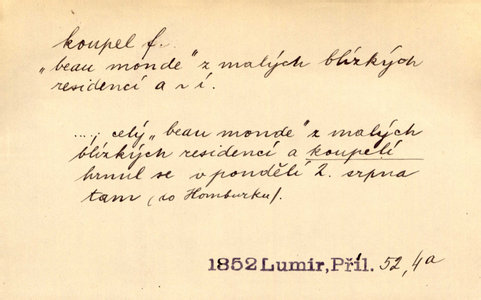 koupel f.
„beau monde" z malých blízkých
residencí a ~ í.
...; celý „beau monde" z malých
blízkých residencí a koupelí
hrnul se v pondělí 2. srpna
tam (do Homburku).
1852 Lumír, Příl. 52, 4a